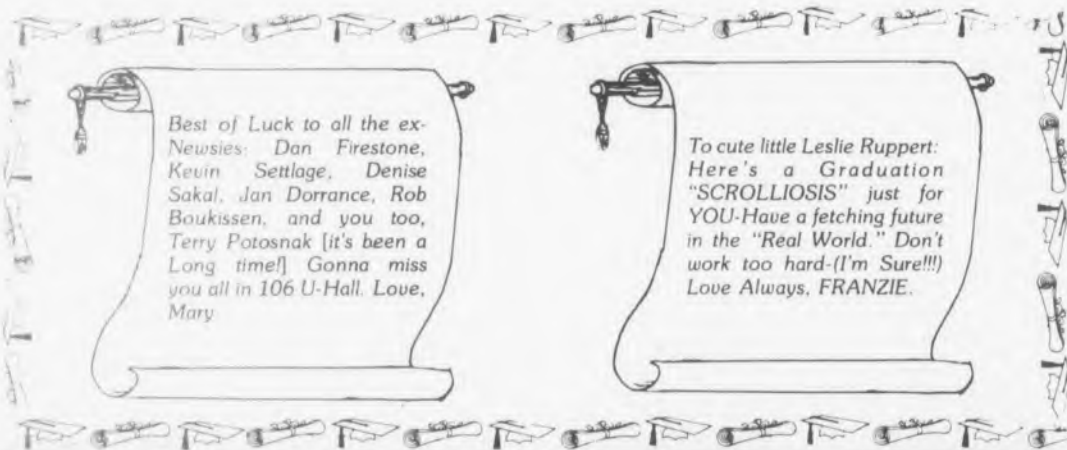 Best of Luck to all the ex-
Newsies: Dan Firestone,
Kevin Settlage, Denise
Sakal, Jan Dorrance, Rob
Boukissen, and you too,
Terry Potosnak [it's been a
Long time!] Gonna miss
you all in 106 U-Hall. Love,
Mary
To cute little Leslie Ruppert:
Here's a Graduation
"SCROLLIOSIS" just for
YOU-Have a fetching future
in the "Real World." Don't
work too hard-(I'm Sure!!!)
Love Always, FRANZIE.